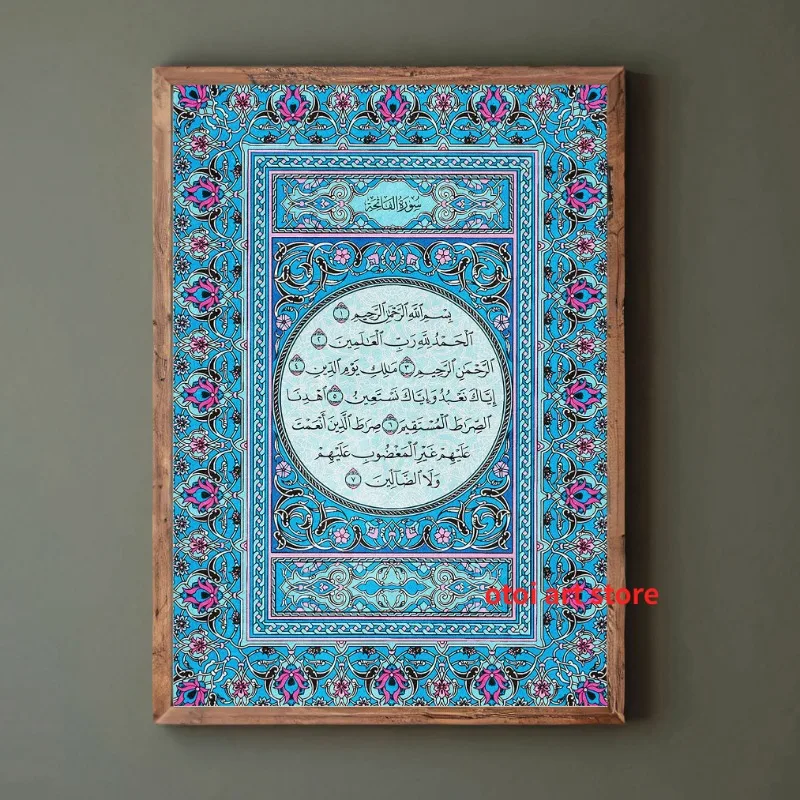 سورة الفاتحة
بِسْمِ ٱللَّهِ ٱلرَّحْمَٰنِ ٱلرَّحِيمِ ١
ٱلْحَمْدُ لِلَّهِ رَبِّ ٱلْعَٰلَمِينَ ٢
ٱلرَّحْمَٰنِ ٱلرَّحِيمِ ٣ مَٰلِكِ يَوْمِ ٱلدِّينِ ٤
إِيَّاكَ نَعْبُدُ وَإِيَّاكَ نَسْتَعِينُ ٥ ٱهْدِنَا
ٱلصِّرَٰطَ ٱلْمُسْتَقِيمَ ٦ صِرَٰطَ ٱلَّذِينَ أَنْعَمْتَ
عَلَيْهِمْ غَيْرِ ٱلْمَغْضُوبِ عَلَيْهِمْ
وَلَا ٱلضَّآلِّينَ ٧
otoi art store